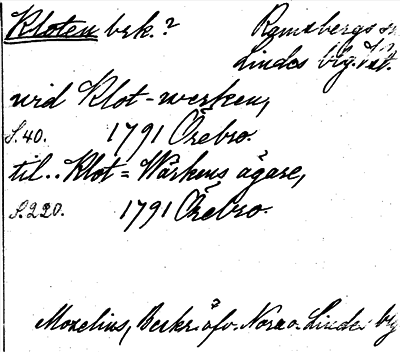 Kloten brk.? Ramsbergs sn
Lindes brg. Väst.
vid Klot-werken,
S.40. 1791 Örebro.
til.. Klot = Wärkens ägare,
S.220. 1791 Örebro.
Moxelius, Beskr. öfv. Nora o. Lindes brg